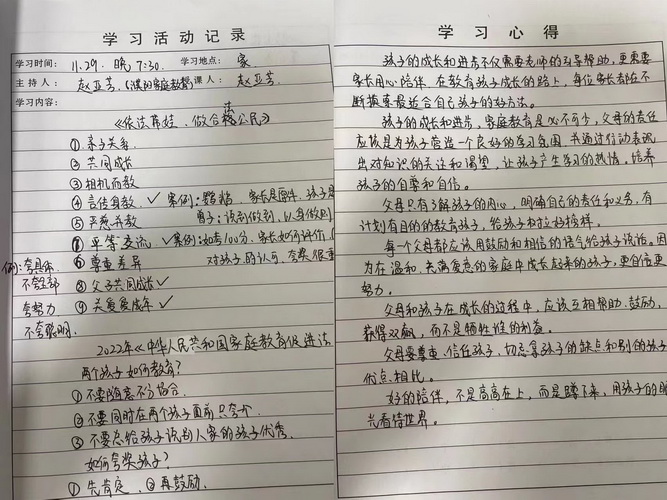 学习活动记录
学习时间： 11.29. 晚 7:30. 学习地点： 家
主持人 赵亚芳.(濮阳家庭教育) 课人： 赵亚芳
学习内容：
《依法带娃，做合格公民》
法
① 亲子关系.
② 共同成长
③ 相机而教
④ 言传身教. ✓ 案例：复印. 家长是原件. 孩子是
⑤ 严慈并教 曾子：说到做到. 以身做则
⑥ 平等交流. ✓ 案例：如考100分. 家长如何评价
例：夸具体 ⑦ 尊重差异 对孩子的认可. 夸奖很重
不夸全部 ⑧ 父子共同成长 ✓
夸努力 ⑨ 关爱爱成年 ✓
不夸聪明.
2022年《中华人民共和国家庭教育促进法
两个孩子如何教育？
① 不要随意不分场合.
② 不要同时在两个孩子面前只夸一个.
③ 不要总给孩子说别人家的孩子优秀.
如何夸奖孩子？
① 先肯定. ② 再鼓励.
学习心得
孩子的成长和进步不仅需要老师的引导帮助，更需要
家长用心陪伴. 在教育孩子成长的路上，每位家长都在不
断摸索最适合自己孩子的好方法。
孩子的成长和进步，家庭教育是必不可少，父母的责任
应该是为孩子营造一个良好的学习氛围，并通过行动表现
出对知识的关注和渴望，让孩子产生学习的热情，培养
孩子的自尊和自信。
父母只有了解孩子的内心，明确自己的责任和义务，有
计划有目的的教育孩子，给孩子树立好榜样。
每一个父母都应该用鼓励和相信的语气给孩子说话。因
为在温和、充满爱意的家庭中成长起来的孩子，更自信更
努力。
父母和孩子在成长的过程中，应该互相帮助.鼓励，
获得双赢，而不是牺牲谁的利益。
父母要尊重、信任孩子，切忌拿孩子的缺点和别的孩子
优点相比。
好的陪伴，不是高高在上，而是蹲下来，用孩子的眼
光看待世界。